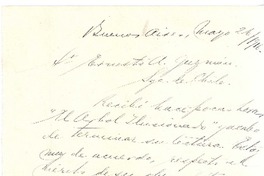 Buenos Aires, Mayo 26/911.
Sr. Ernesto A. Guzmán.
Sgo. de Chile.
Recibí hace pocas horas
"El Arbol Ilusionado" y acabo
de terminar su lectura
muy de acuerdo, respecto al